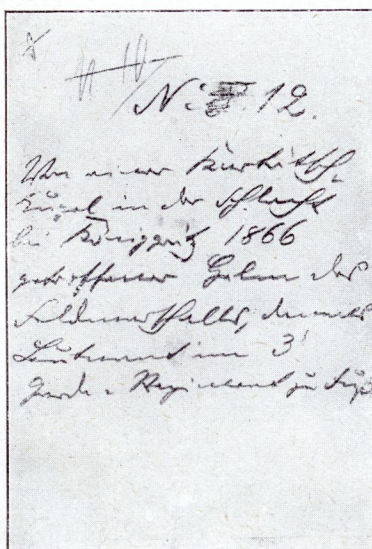 N: 12.
Von einer Kartätsch-
kugel in der Schlacht
bei Königgrätz 1866
getroffener Helm des
Feldmarschalls, damals
Leutnant im 3
Garde-Regiment zu Fuß